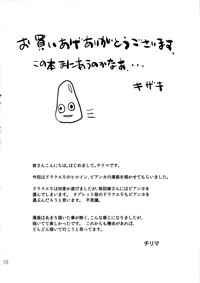 お買いあげありがとうございます。
この本まにあうのかなあ・・・
キザキ
皆さんこんにちは。はじめまして。チリマです。
今回はドラクエ5のヒロイン、ビアンカの漫画を描かせてもらいました。
ドラクエ5は何度か遊びましたが、毎回嫁さんにはビアンカを
選んでしまいます。 タブレット版のドラクエ5もビアンカを
選ぶんだろうと思います。 不思議。
漫画はあまり描いた事が無く、こんな感じになりましたが、
描いてて楽しかったです。 これからも機会があれば、
どんどん描いて行こうと思ってます。
チリマ